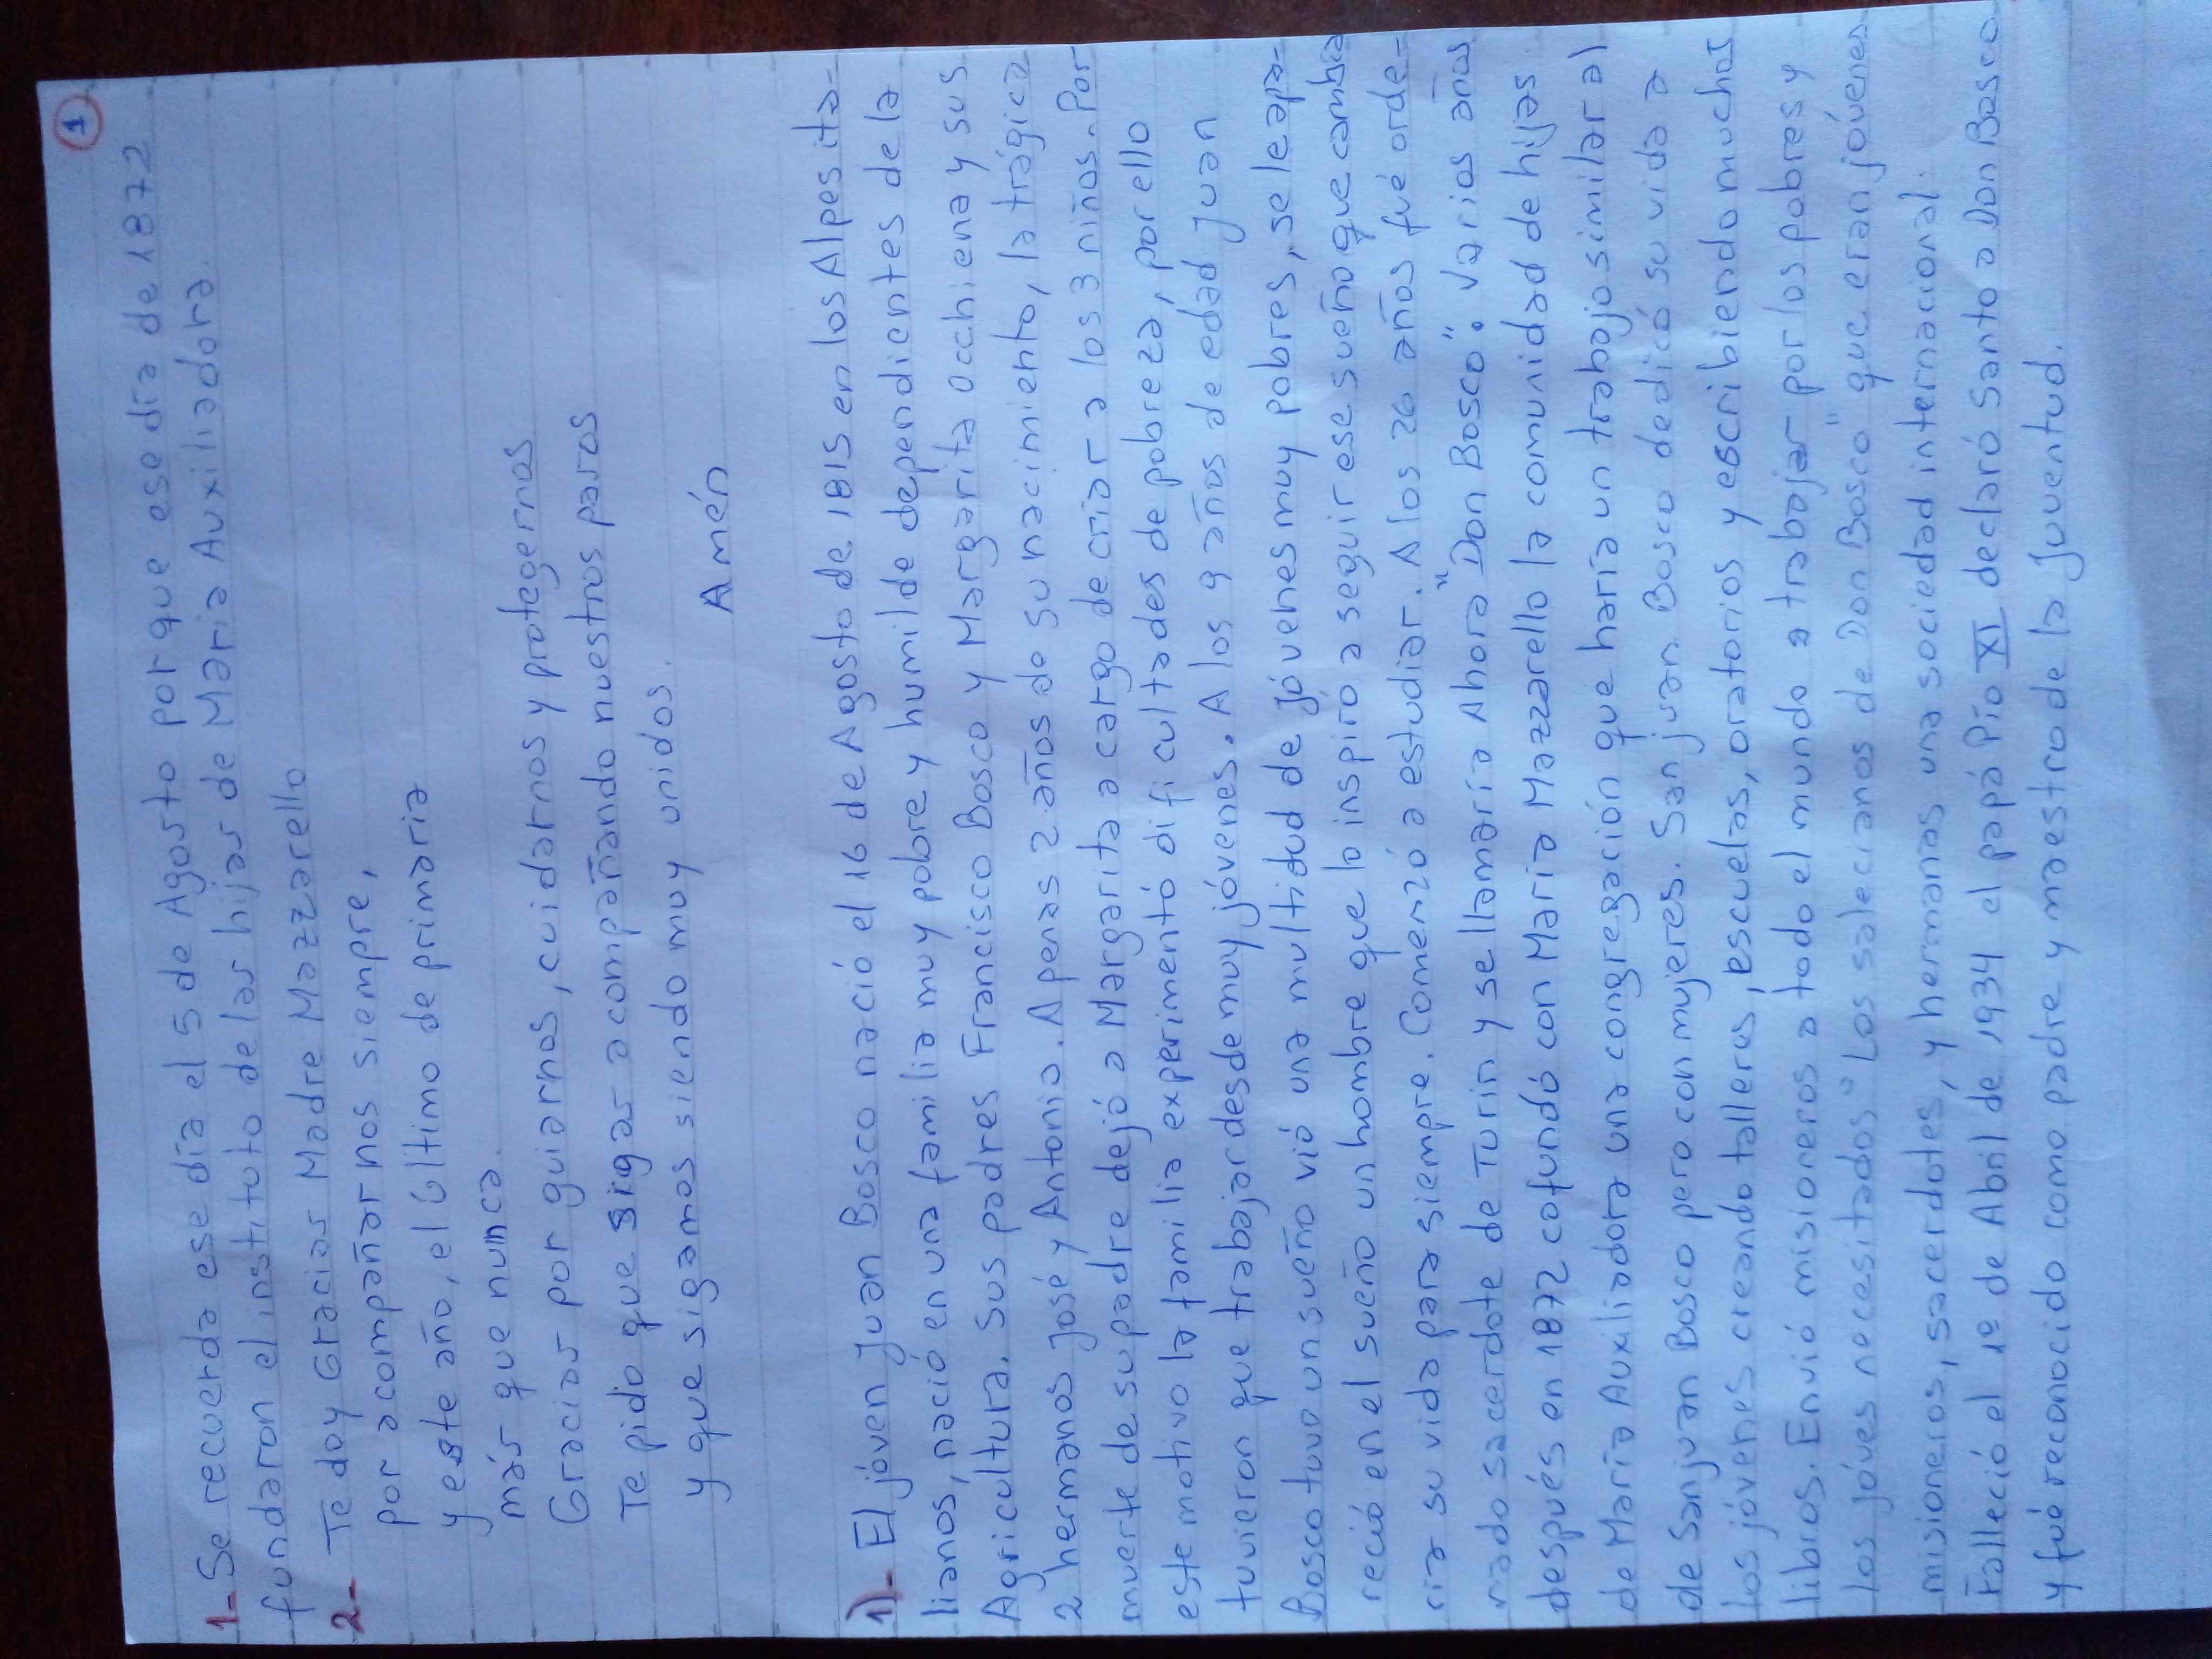 1
1- Se recuerda ese día el 5 de Agosto por que ese día de 1872
fundaron el instituto de las hijas de María Auxiliadora.
2- Te doy Gracias Madre Mazzarello
por acompañarnos siempre,
y este año, el último de primaria
más que nunca.
Gracias por guiarnos, cuidarnos y protegernos
Te pido que sigas acompañando nuestros pasos
y que sigamos siendo muy unidos.
Amén
1)- El jóven Juan Bosco nació el 16 de Agosto de 1815 en los Alpes ita-
lianos, nació en una familia muy pobre y humilde dependientes de la
Agricultura. Sus padres Francisco Bosco y Margarita Occhiena y sus
2 hermanos José y Antonio. Apenas 2 años de su nacimiento, la trágica
muerte de su padre dejó a Margarita a cargo de criar a los 3 niños. Por
este motivo la familia experimentó dificultades de pobreza, por ello
tuvieron que trabajar desde muy jóvenes. A los 9 años de edad Juan
Bosco tuvo un sueño vió una multitud de jóvenes muy pobres, se le apa-
reció en el sueño un hombre que lo inspiró a seguir ese sueño que cambia
ria su vida para siempre. Comenzó a estudiar. A los 26 años fué orde-
nado sacerdote de Turin y se llamaría Ahora "Don Bosco". Varios años
después en 1872 cofundó con María Mazzarello la comunidad de hijas
de María Auxiliadora una congregación que haría un trabajo similar al
de San Juan Bosco pero con mujeres. San Juan Bosco dedicó su vida a
los jóvenes creando talleres, escuelas, oratorios y escribiendo muchos
libros. Envió misioneros a todo el mundo a trabajar por los pobres y
los jóves necesitados "Los salecianos de Don Bosco" que eran jóvenes
misioneros, sacerdotes, y hermanas una sociedad internacional.
Falleció el 1º de Abril de 1934 el papá Pío XI declaró Santo a Don Bosco
y fué reconocido como padre y maestro de la juventud.